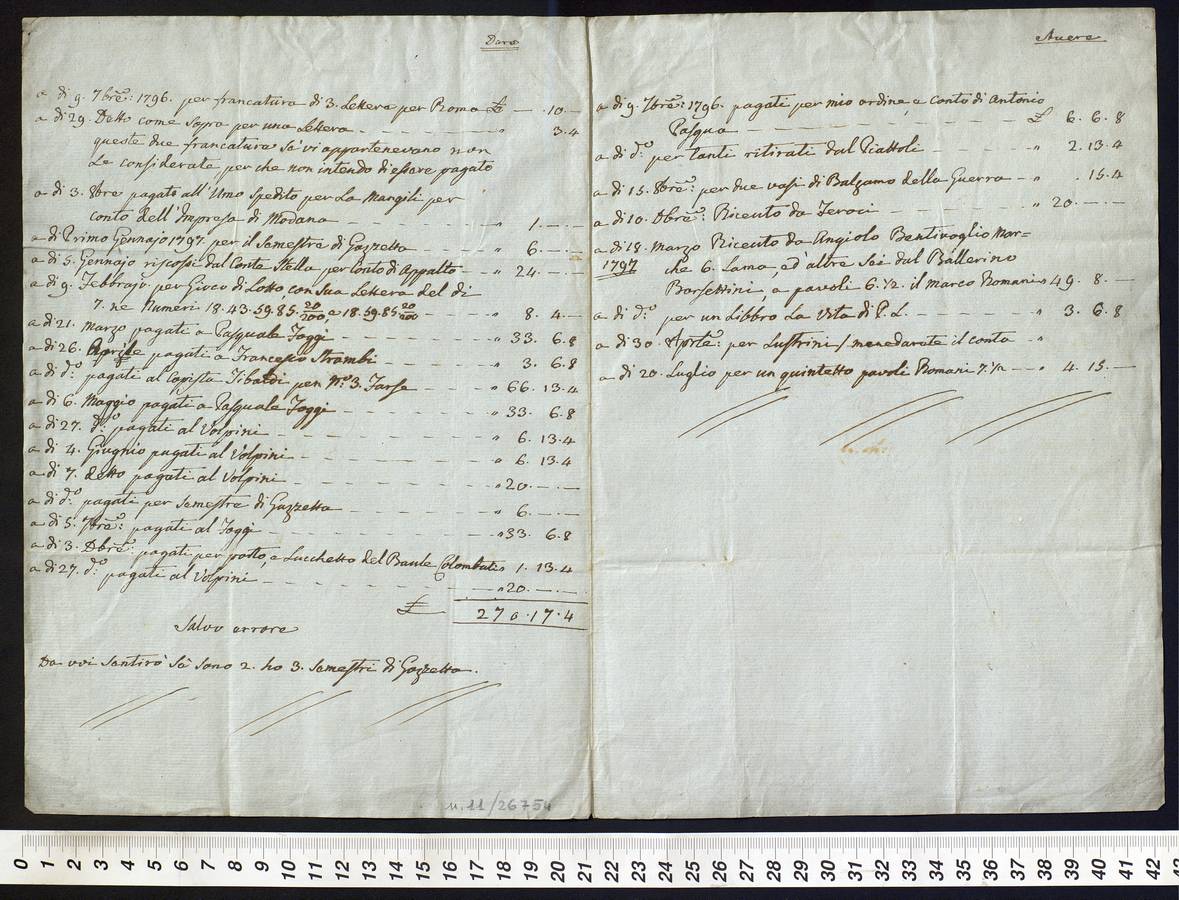 Dare
a di 9. 7bre: 1796. per francatura di 3. Lettere per Roma £ — .10.—
a di 29. Detto come sopra per una Lettera — " 3.4
queste due francature se vi appartenevano non
Le considerate per che non intendo d'essere pagato
a di 3. 8bre pagato all'Umo Spedito per La Mangili per
conto dell'Impresa di Modana — " 1.—.—
a di Primo Gennajo 1797. per il Semestre di Gazzetta — " 6.—.—
a di 5. Gennajo riscossi dal Conte Stella per Conto di Appalto — " 24.—.—
a di 9. Febbrajo per Giuco di Lotto, con sua Lettera del di
7. ne Numeri 18.43.59.85. 20/200 e 18.59.85 20/200 — " 8. 4.—
a di 21. Marzo pagati a Pasquale Foggi — " 33. 6.8
a di 26. Aprile pagati a Francesco Strambi — " 3. 6.8
a di do pagati al Copista Tibaldi per No 3. Farse — " 66. 13.4
a di 6. Maggio pagati a Pasquale Foggi — " 33. 6.8
a di 27. do pagati al Volpini — " 6. 13.4
a di 4. Giugnio pagati al Volpini — " 6. 13.4
a di 7. detto pagati al Volpini — " 20.—.—
a di do pagati per Semestre di Gazzetta — " 6.—.—
a di 5. 7bre: pagati al Foggi — " 33. 6.8
a di 3. Dbre: pagati per porto, e Lucchetto del Baule Colombati " 1. 13.4
a di 27. do pagati al Volpini — " 20.—.—
£ 270.17.4
Salvo errore
Da voi Sentirò Se Sono 2. ho 3. Semestri di Gazzetta.
n.11/26754
Avere
a di 9. 7bre: 1796. pagati per mio ordine a conto di Antonio
Pasqua — £ 6. 6.8
a di do per tanti ritirati dal Piattoli — " 2. 13.4
a di 15. 8bre: per due vasi di Balzamo della Guerra — " . 15.4
a di 10. Dbre: Riceuto da Feroci — " 20.—.—
a di 18. Marzo Riceuto da Angiolo Bentivoglio Mar=
1797 che 6. Lama, ed'altre Sei dal Ballerino
Borsettini, a pavoli 6.1/2. il marco Romani " 49. 8.—
a di do per un Libbro La Vita di P. L. — " 3. 6.8
a di 30. Aprle: per Lustrini / menedarete il conto — "
a di 20. Luglio per un quintetto pavoli Romani 7.1/2 — " 4. 15.—